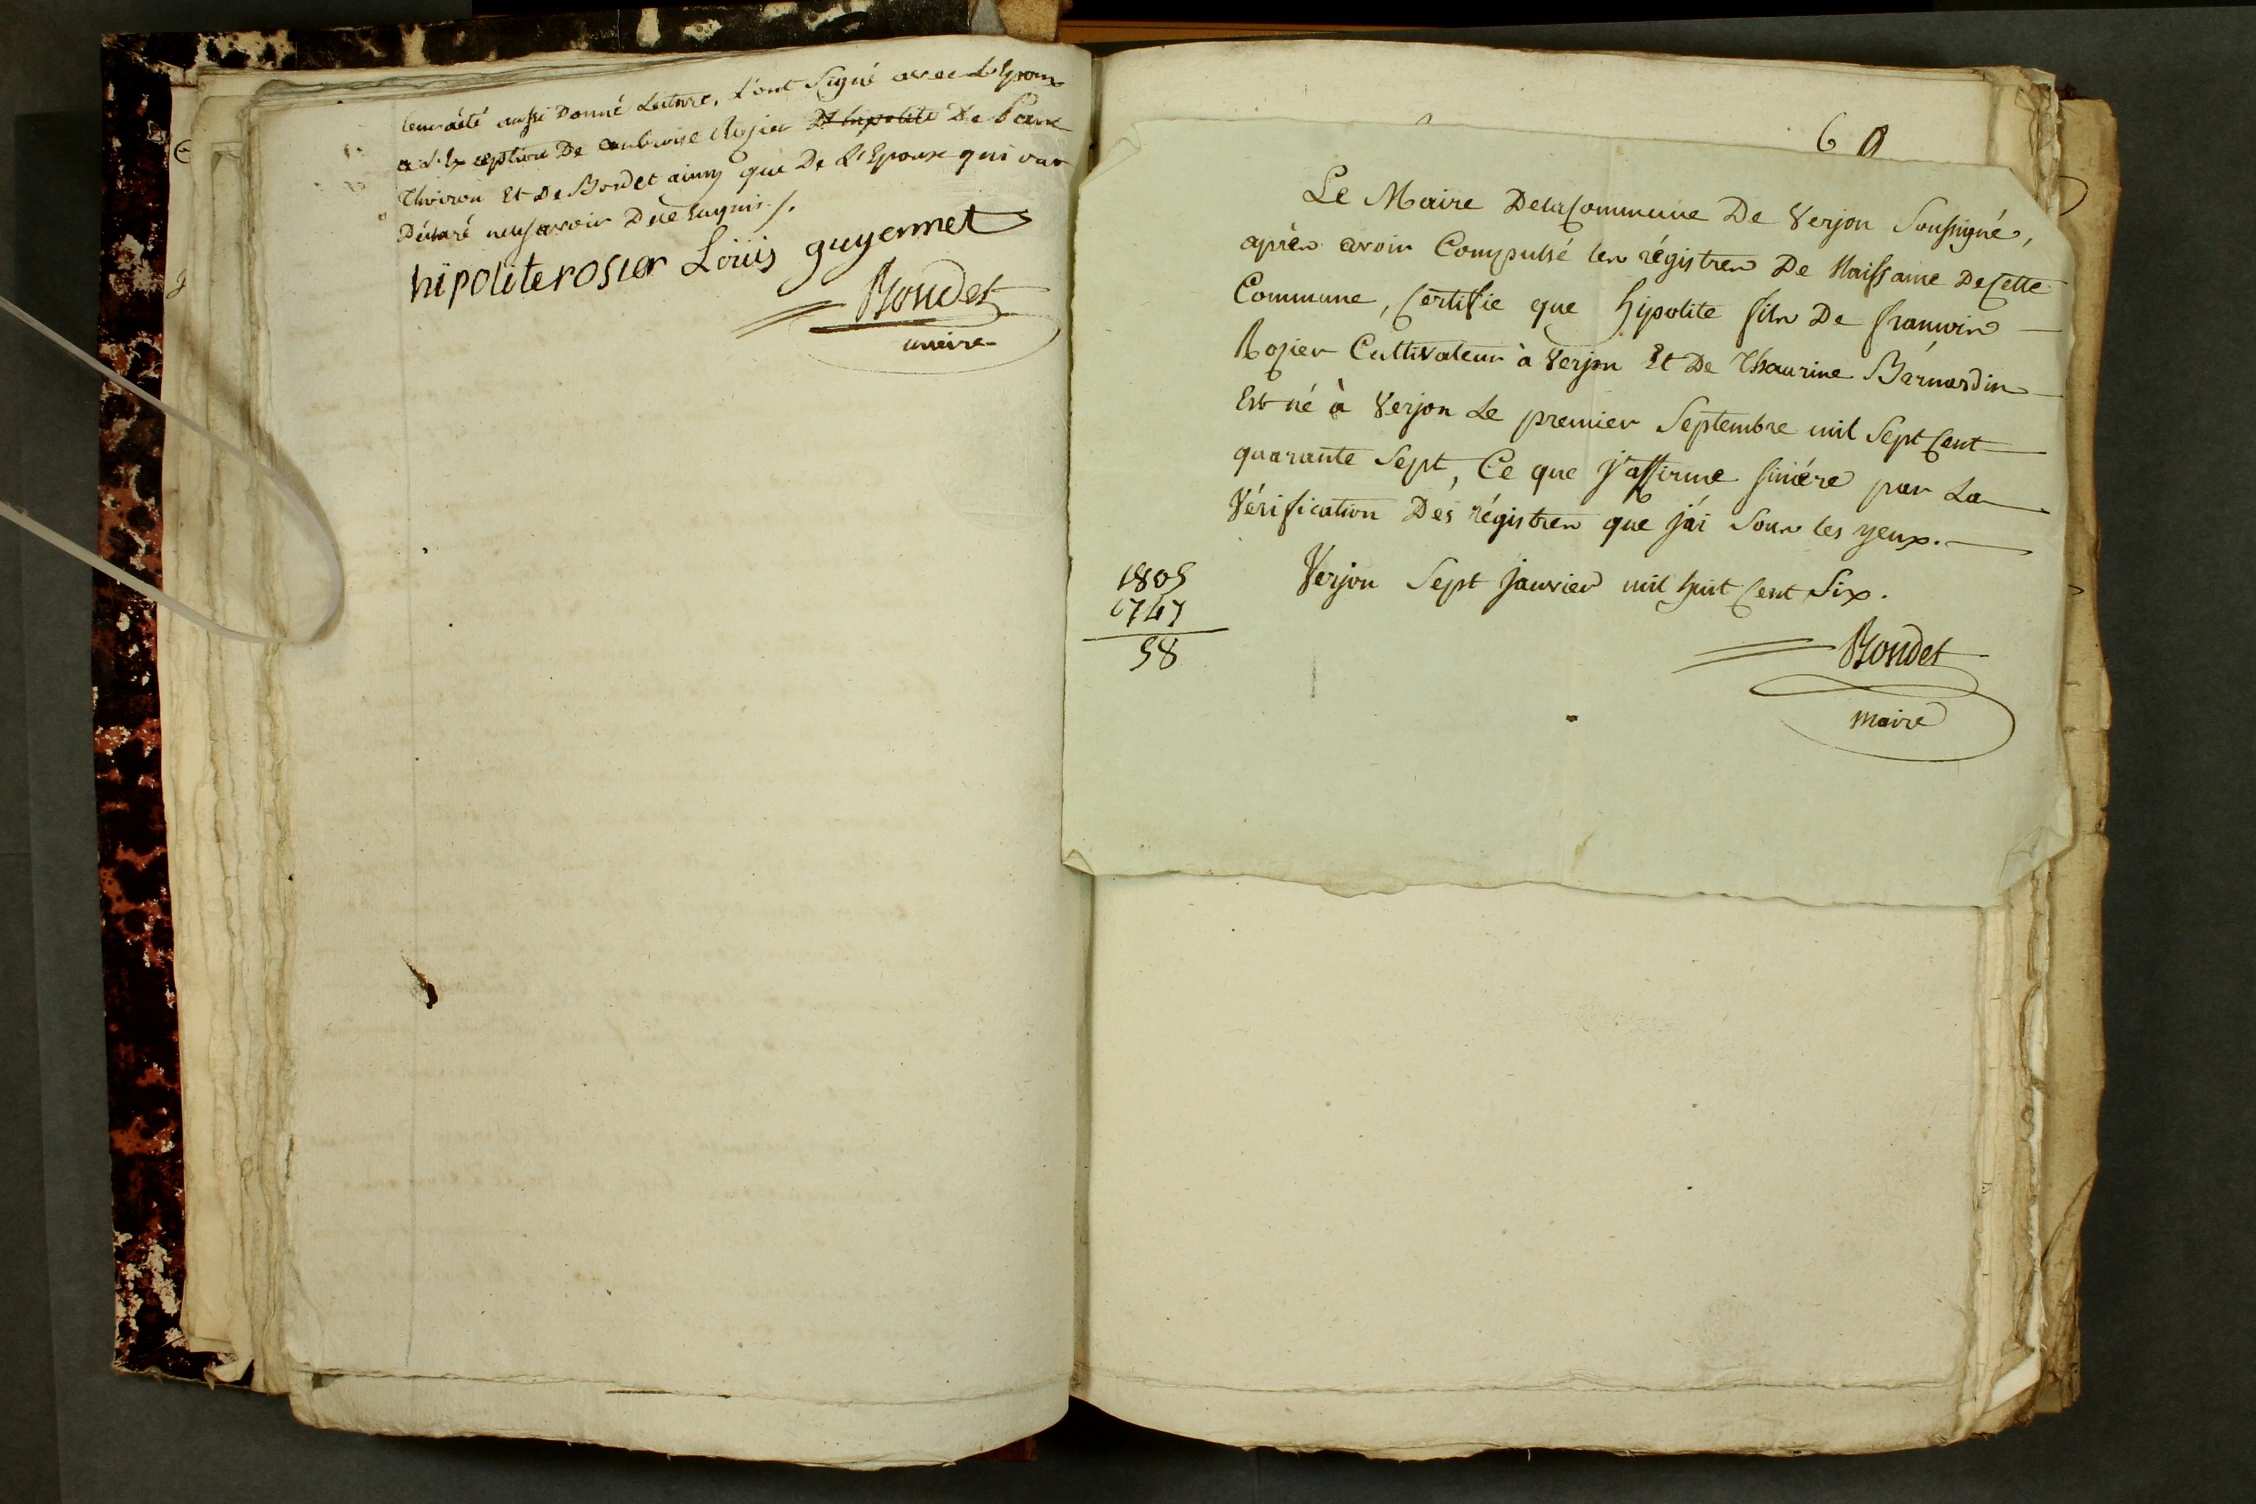 leur a été aussi Donné Lecture, l'ont Signé avec L'Epoux
a l'Exception De ambroise Rozier De hipolite De Pierre
Thoiron Et De Bondet ainsy que De L'Epouse qui ont
Déclaré ne Savoir De ce Enquis /.
hipolite rosier Loüis guyennet
Bondet
maire
60
Le Maire De la Commune De Verjon Soussigné,
après avoir Compulsé les régistres De Naissance De Cette
Commune, Certifie que hipolite fils De François
Rozier Cultivateur à Verjon Et De Thaurine Bérnardin
Est né à Verjon Le premier Septembre mil Sept Cent
quarante Sept, Ce que j'affirme Sincére par La
Vérification Dés régistres que j'ai Sous les yeux.
Verjon Sept janvier mil huit Cent Six.
1805
1747
58
Bondet
maire